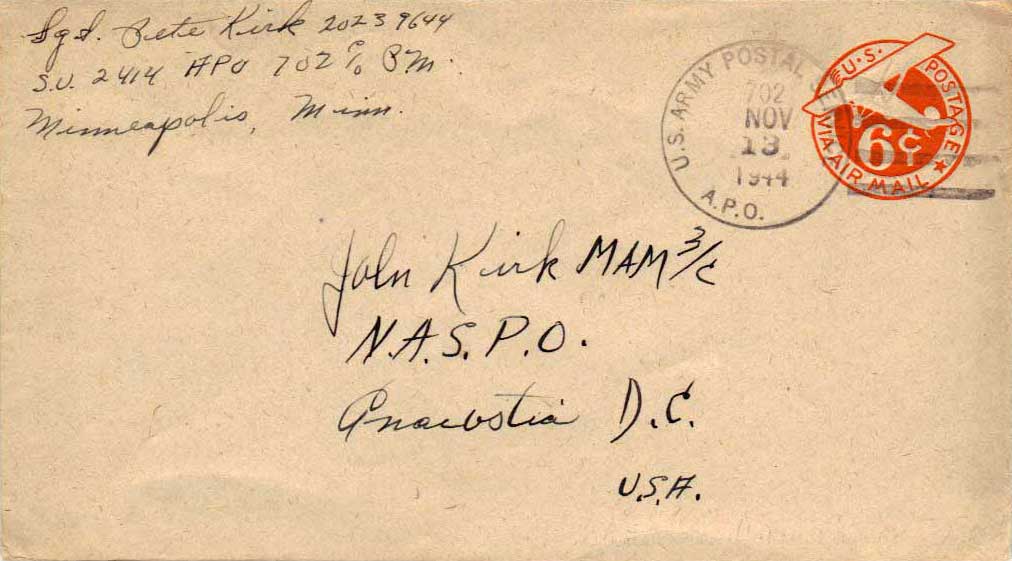 Sgt. Pete Kirk 20239644
S.U. 2414 APO 702 c/o P.M.
Minneapolis, Minn.
U.S. ARMY POSTAL SE
702
NOV
13
1944
A.P.O.
U.S. POSTAGE
6¢
VIA AIR MAIL
John Kirk MAM 3/c
N.A.S.P.O.
Anacostia D.C.
U.S.A.